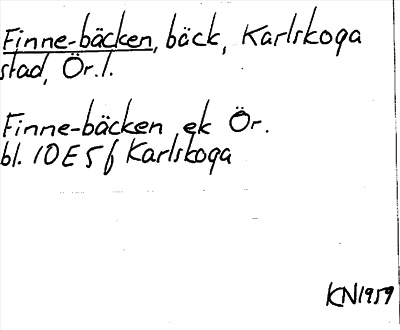 Finne-bäcken, bäck, Karlskoga
stad, Ör.l.
Finne-bäcken ek Ör.
bl. 10E5f Karlskoga
KN1959